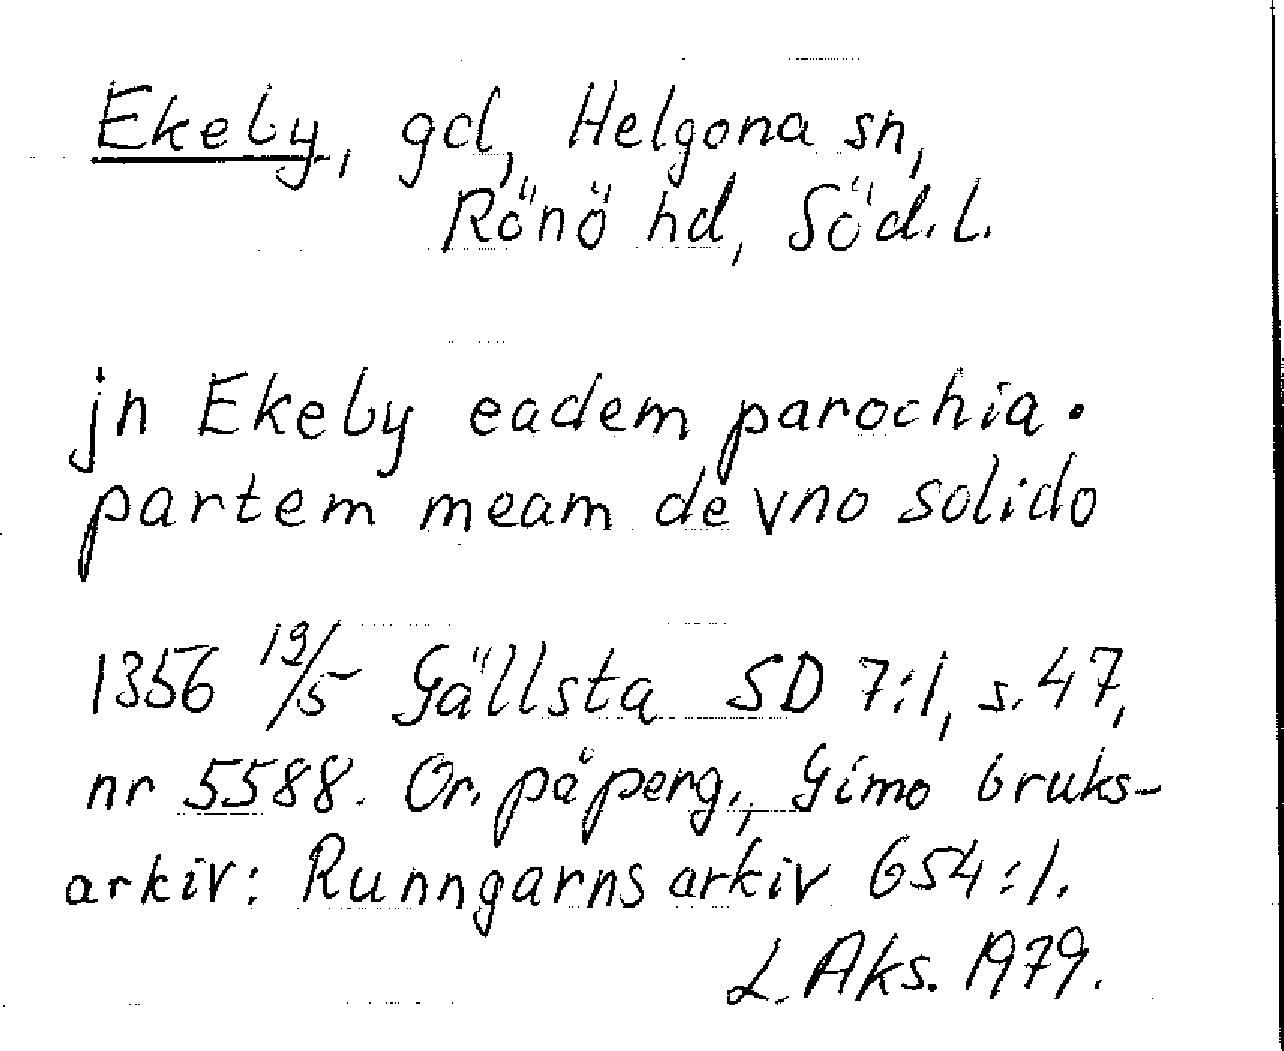 Ekeby, gd, Helgona sn,
Rönö hd, Söd. L.
jn Ekeby eadem parochia.
partem meam de vno solido
1356 19/5 Gällsta SD 7:1, s. 47,
nr 5588. Or. på perg., Gimo bruks-
arkiv: Runngarns arkiv 654:1.
L. Aks. 1979.